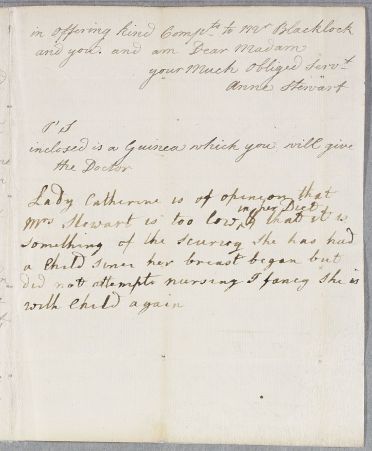 in offering kind Compts to Mr Blacklock
and you. and am Dear Madam
your Much obliged Servt
Anne Stewart
P S
inclosed is a Guinea which you will give
the Doctor
Lady Catherine is of opineon that
Mrs Stewart is too low in her Diet & that it is
something of the scurvey she has had
a Child since her breast began but
did not attempt nursing I fancy she is
with Child again